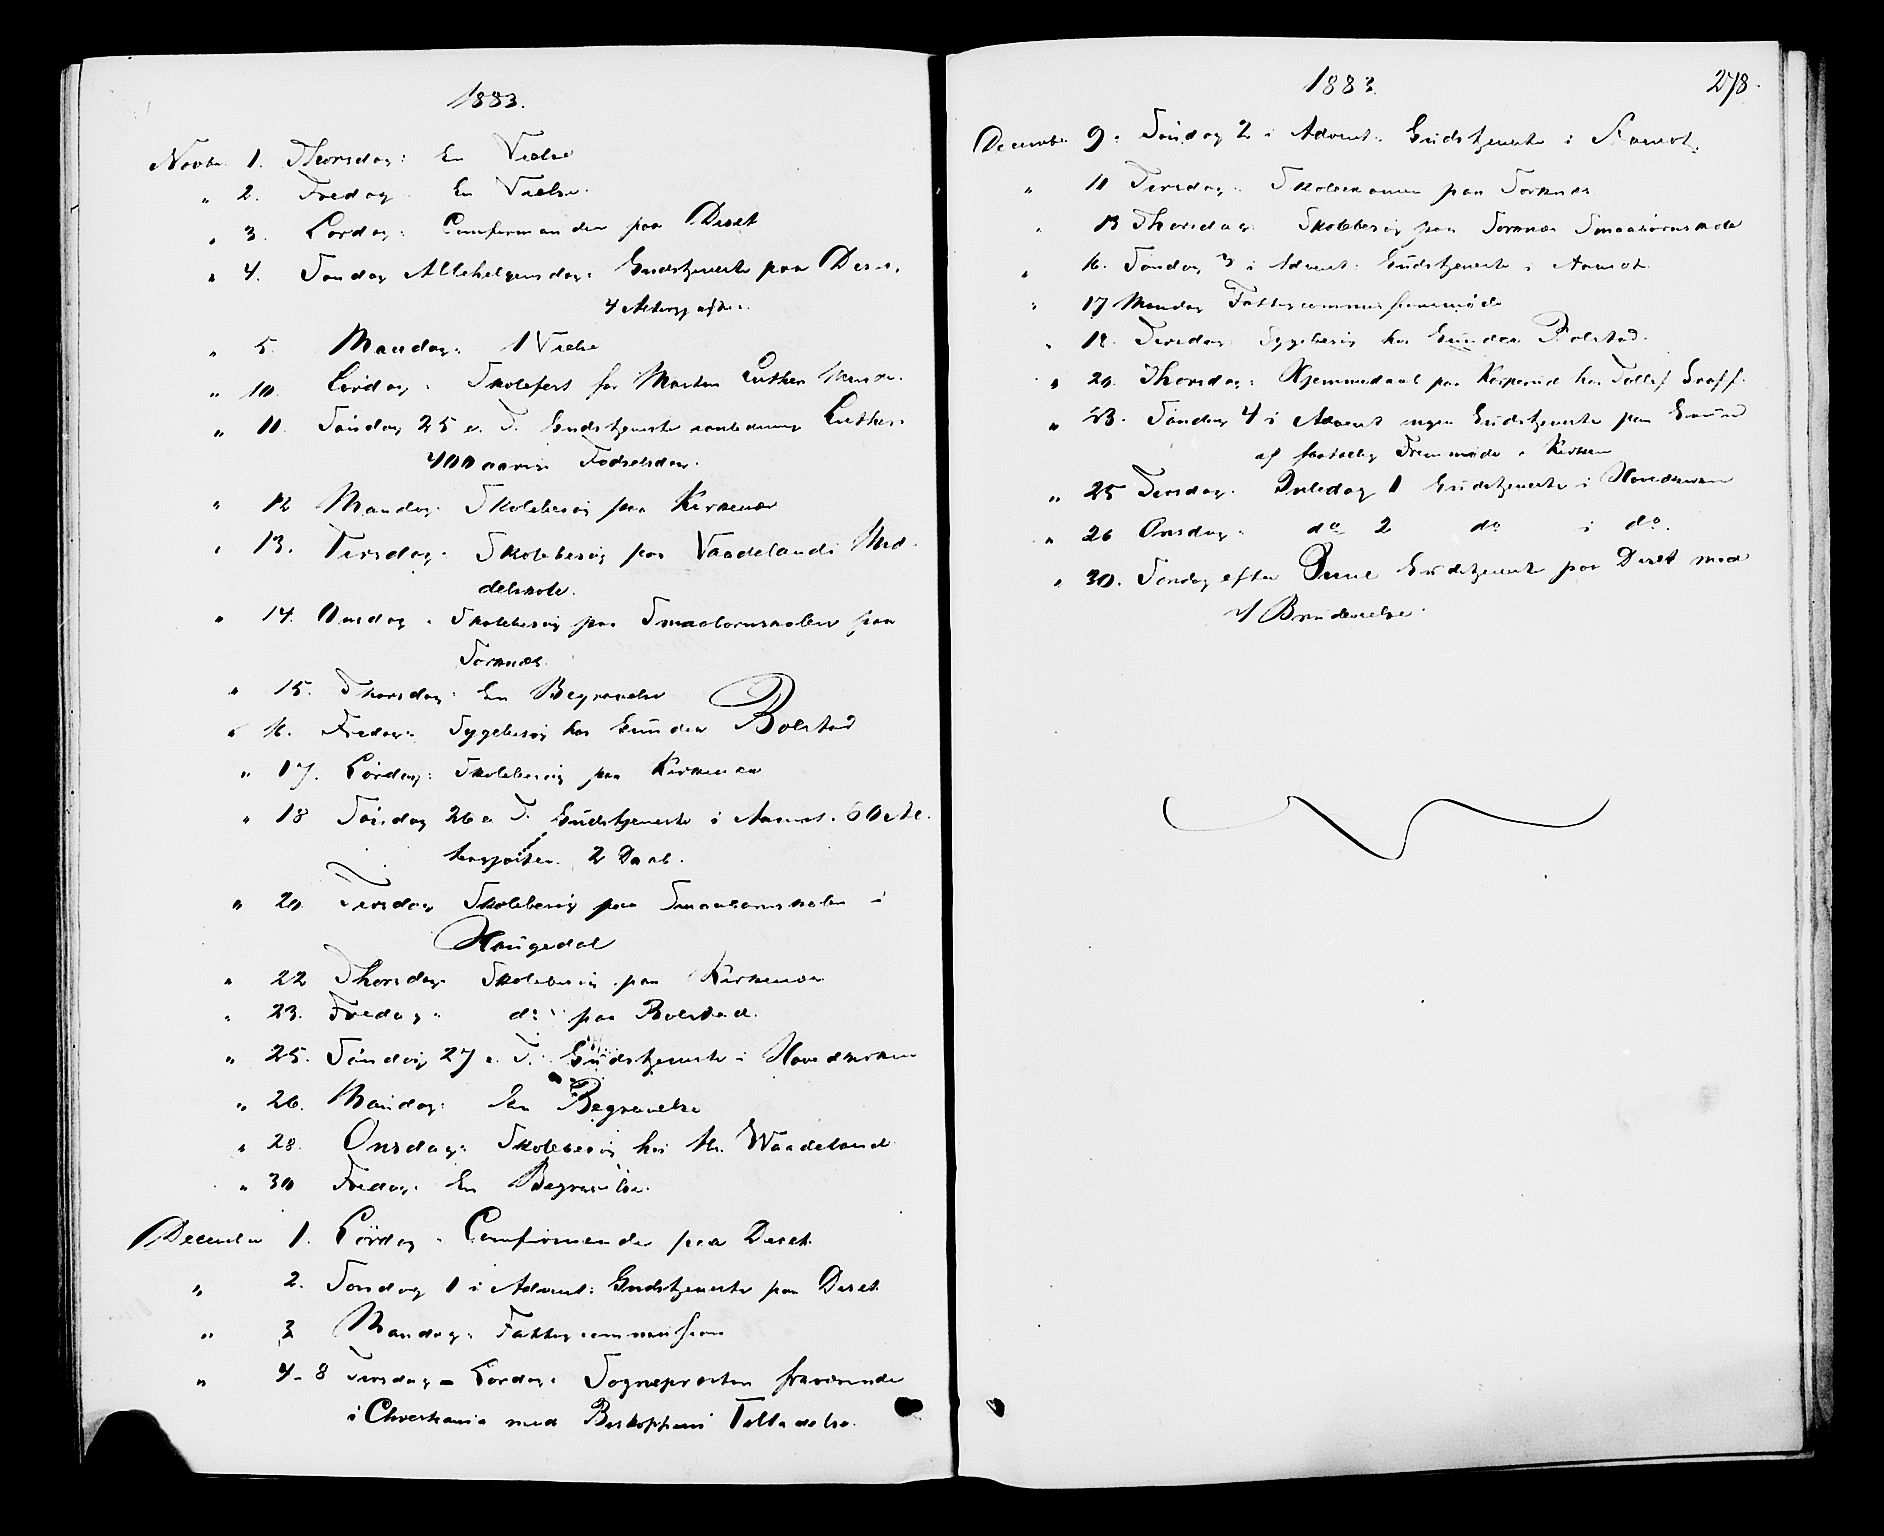 1883.
Novbr. 1. Thorsdag: En Vielse
" 2. Fredag En Vielse.
" 3. Lørdag: Confirmander paa Deset
" 4. Søndag Allehelgensdag: Gudstjeneste paa Deset.
4 Altergjæster.
" 5. Mandag: 1 Vielse
" 10. Lørdag: Skolefest for Morten Luther
" 11. Søndag 25 e. T. Gudstjeneste anledning Luthers
400 aarige Fødselsdag.
" 12 Mandag: Skolebesøg paa Kirkenær
" 13. Tirsdag: Skolebesøg paa Vaadelands Mid-
delskole.
" 14. Onsdag: Skolebesøg paa Smaabørnskolen paa
Sorknæs.
" 15. Thorsdag: En Begravelse
" 16. Fredag: Sygebesøg hos Gunder Bolstad
" 17. Lørdag: Skolebesøg paa Kirkenær
" 18 Søndag 26 e. T. Gudstjeneste i Aamot. 60 Al-
tergjæster. 2 Daab.
" 20. Tirsdag Skolebesøg paa Smaabørnskolen i
Haugedal
" 22 Thorsdag: Skolebesøg paa Kirkenær
" 23. Fredag: do paa Bolstad.
" 25. Søndag 27 e. T. Gudstjeneste i Hovedkirken
" 26. Mandag: En Begravelse
" 28. Onsdag: Skolebesøg hos Hr. Waadeland
" 30 Fredag: En Begravelse.
December 1. Lørdag: Confirmander paa Deset.
" 2. Søndag 1 i Advent: Gudstjeneste paa Deset
" 3 Mandag: Fattigcommission
" 4-8 Tirsdag - Lørdag: Sognepræsten fraværende
i Christiania med Biskoppens Tilladelse.
1883. 278.
December 9: Søndag 2 i Advent: Gudstjeneste i Aamot.
" 11 Tirsdag: Skoleexamen paa Sorknæs
" 13 Thorsdag: Skolebesøg paa Sorknæs Smaabørnskole
" 16. Søndag 3 i Advent: Gudstjeneste i Aamot
" 17 Mandag Fattigcommissionsmøde
" 18. Tirsdag: Sygebesøg hos Gunder Bolstad.
" 20. Thorsdag: Hjemmedaab paa Kasperud hos Tollef Graff.
" 23. Søndag 4 i Advent ingen Gudstjeneste paa Grund
af faatallig Fremmøde i Kirken
" 25 Tirsdag: Juledag 1 Gudstjeneste i Hovedkirken
" 26 Onsdag: do 2 do i do.
" 30. Søndag efter Juul Gudstjeneste paa Deset med
1 Brudevielse.